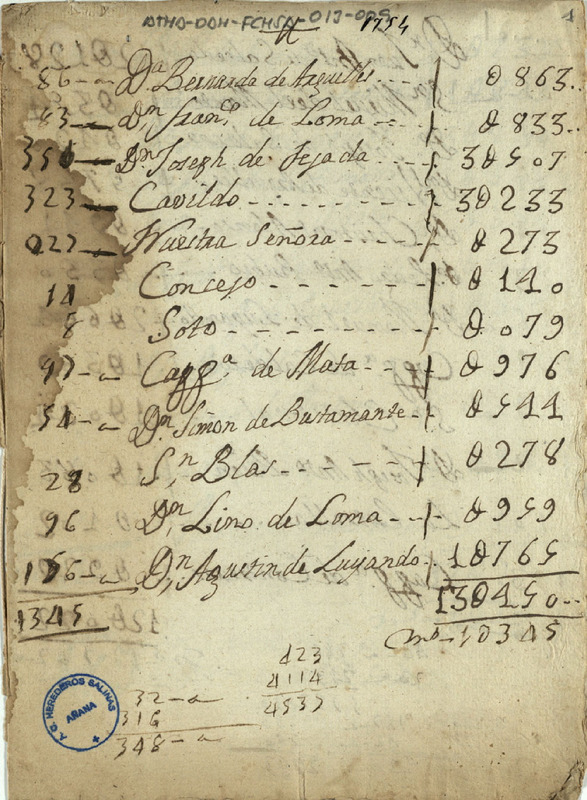 ATHA-DAH-FCHSA-017-009
1754
86-a Dª Bernarda de Arguelles 0863
83 dn Franco de Loma 0833
350 Dn Joseph de Tejada 30507
323 Cavildo 30233
027 Nuestra Señora 0273
14 Concejo 0140
8 Soto 0079
97-a Capp.ª de Mata 0976
54-a Dn Simon de Bustamante 0544
28 Sn Blas 0278
96 Dn Lino de Loma 0959
176-a Dn Agustin de Luyando 10765
1345 130450
10345
423
4114
4537
32-a
316
348-a
A.C. HEREDEROS SALINAS
AÑANA